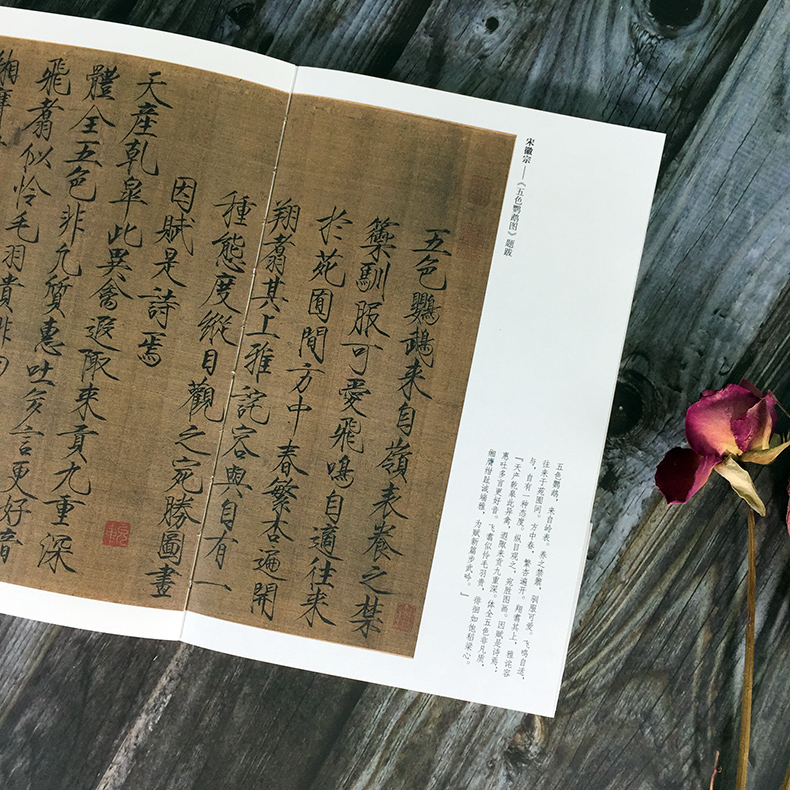 宋徽宗——《五色鹦鹉图》题跋
五色鹦鹉，来自岭表。养之禁籞，驯服可爱。飞鸣自适，
往来于苑囿间。方中春，繁杏遍开。翔翥其上，雅诧容
与，自有一种态度。纵目观之，宛胜图画。因赋是诗焉：
『天产乾皋此异禽，遐陬来贡九重深。体全五色非凡质，
惠吐多言更好音。飞翥似怜毛羽贵，徘徊如饱稻粱心。
缃膺绀趾诚端雅，为赋新篇步武吟。』
五色鸚鵡来自嶺表養之禁
籞馴服可愛飛鳴自適往来
於苑囿間方中春繁杏遍開
翔翥其上雅詫容與自有一
種態度縱目觀之宛勝圖畫
因賦是詩焉
天產乾皐此異禽遐陬来貢九重深
體全五色非凡質惠吐多言更好音
飛翥似怜毛羽貴